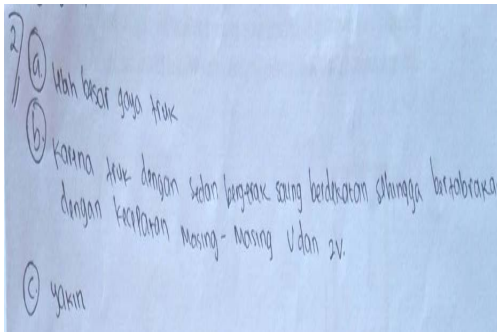 2) a. lebih besar gaya truk
b. Karena truk dengan sedan bergerak saling berdekatan sehingga bertabraka
dengan kecepatan masing-masing V dan 2V.
c. yakin